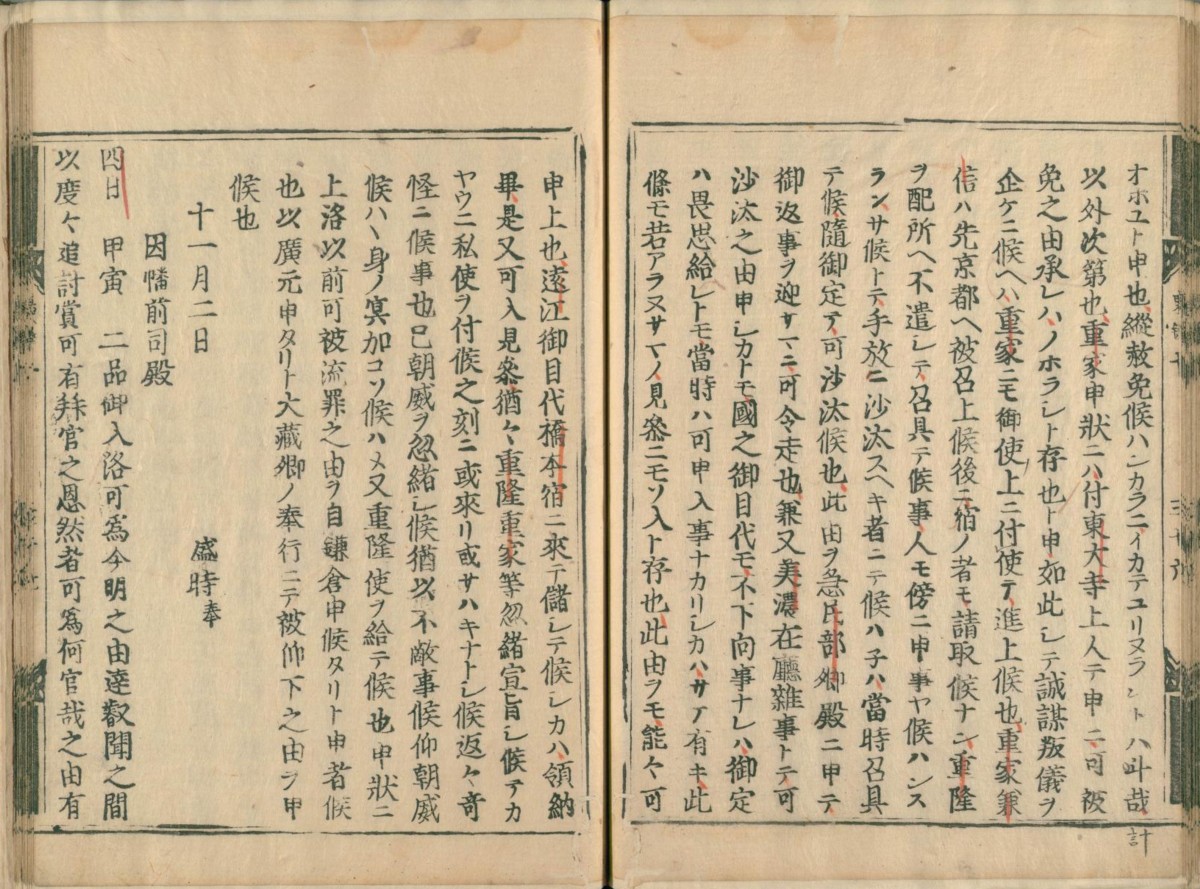 オホユト申也縱赦免候ハンカラニイカテユリヌラントハ叫哉計
以外次第也重家申狀ニハ付東大寺上人テ申ニ可被
免之由承レハノホラント存也ト申如此シテ誠謀叛儀ヲ
企ケニ候ヘハ重家ニモ御使上ニ付使テ進上候也重家兼
信ハ先京都ヘ被召上候後ニ宿ノ者モ請取候ナン重隆
ヲ配所ヘ不遣シテ召具テ候事人モ傍ニ申事ヤ候ハンス
ランサ候トテ手放ニ沙汰スヘキ者ニテ候ハ子ハ當時召具
テ候隨御定テ可沙汰候也此由ヲ急民部卿殿ニ申テ
御返事ヲ迎サマニ可令走也兼又美濃在廳雜事トテ可
沙汰之由申シカトモ國之御目代モ不下向事ナレハ御定
ハ畏思給レトモ當時ハ可申入事ナカリシカハサテ有キ此
條モ若アラヌサマノ見參ニモソ入ト存也此由ヲモ能々可
申上也遠江御目代橋本宿ニ來テ儲シテ候シカハ領納
畢是又可入見參猶々重隆重家等忽緖宣旨シ候テカ
ヤウニ私使ヲ付候之刻ニ或來リ或サハキナトシ候返々奇
怪ニ候事也已朝威ヲ忽緖シ候猶以不敵事候仰朝威
候ハヽ身ノ冥加コソ候ハメ又重隆使ヲ給テ候也申狀ニ
上洛以前可被流罪之由ヲ自鎌倉申候タリト申者候
也以廣元申タリト大藏卿ノ奉行ニテ被仰下之由ヲ申
候也
十一月二日　盛時奉
因幡前司殿
四日　甲寅　二品御入洛可爲今明之由達叡聞之間
以度々追討賞可有拜官之恩然者可爲何官哉之由有